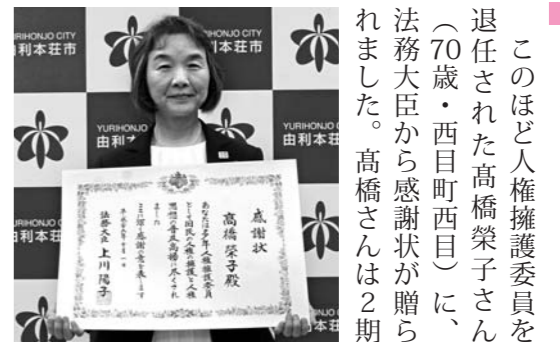 このほど人権擁護委員を
退任された髙橋榮子さん
（70歳・西目町西目）に、
法務大臣から感謝状が贈ら
れました。髙橋さんは２期
YURIHONJO CITY
由利本荘市
感謝状
髙橋榮子殿
あなたは多年人権擁護委員
として国民の人権の擁護と人権
思想の普及高揚に尽くされ
ました
ここに深く感謝の意を表します
法務大臣 上川陽子